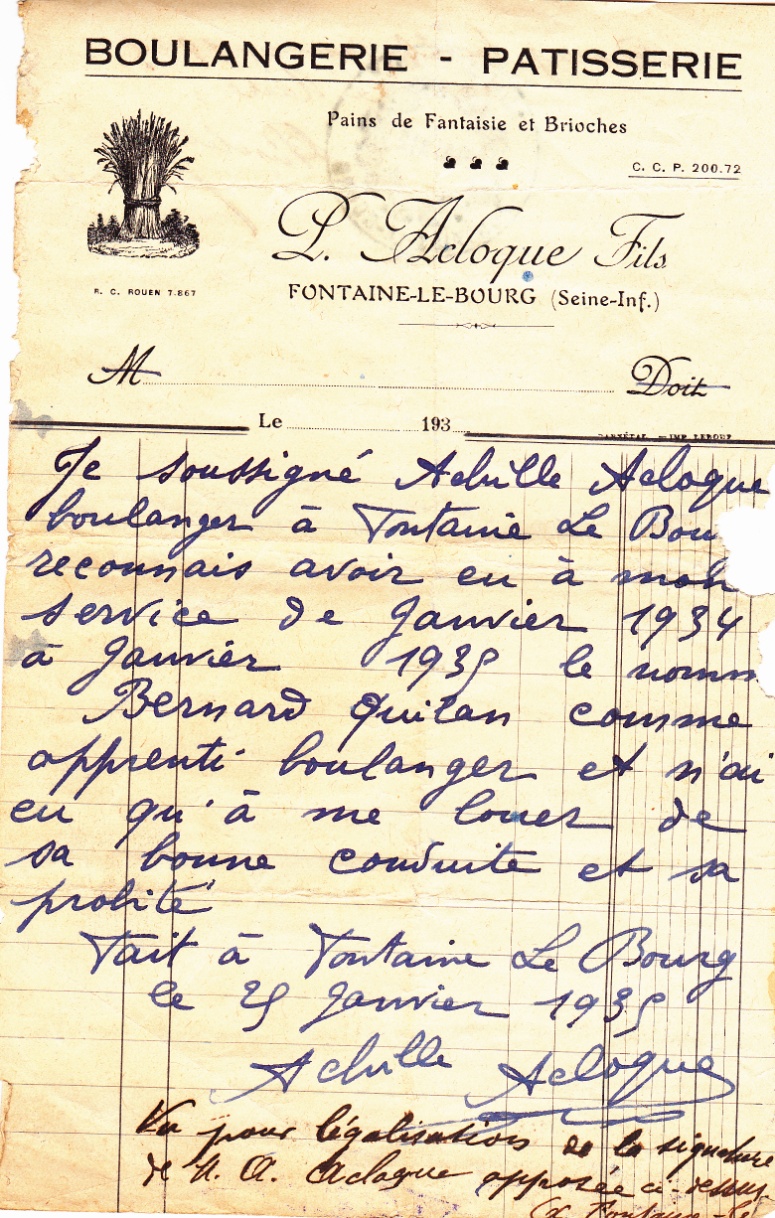 BOULANGERIE - PATISSERIE
Pains de Fantaisie et Brioches
C. C. P. 200.72
P. Acloque Fils
R. C. ROUEN 7.867
FONTAINE-LE-BOURG (Seine-Inf.)
M Doit
Le 193
DARNÉTAL. — IMP. LEBOEF
Je soussigné Achille Acloque
boulanger à Fontaine Le Bou
reconnais avoir eu à mon
service de Janvier 1934
à Janvier 1935 le nomm
Bernard Quilan comme
apprenti boulanger et n'ai
eu qu'à me louer de
sa bonne conduite et sa
probité
Fait à Fontaine Le Bourg
le 25 Janvier 1935
Achille Acloque
Vu pour légalisation de la signature
de M. A. Acloque apposée ci-dessus
à Fontaine-le